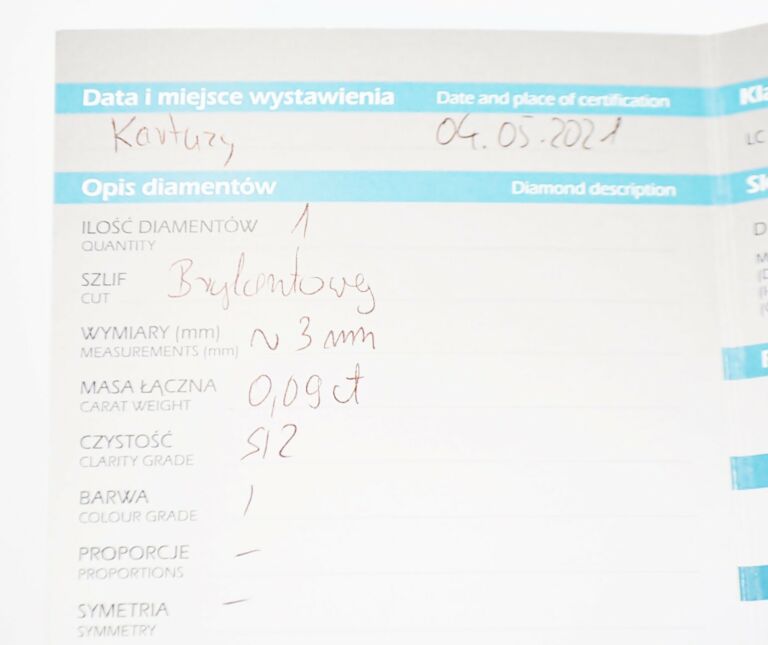 Data i miejsce wystawienia Date and place of certification
Kartuzy 04.05.2021
Opis diamentów Diamond description
ILOŚĆ DIAMENTÓW 1
QUANTITY
SZLIF Brylantowy
CUT
WYMIARY (mm) ~ 3 mm
MEASUREMENTS (mm)
MASA ŁĄCZNA 0,09 ct
CARAT WEIGHT
CZYSTOŚĆ SI2
CLARITY GRADE
BARWA I
COLOUR GRADE
PROPORCJE –
PROPORTIONS
SYMETRIA –
SYMMETRY
LC